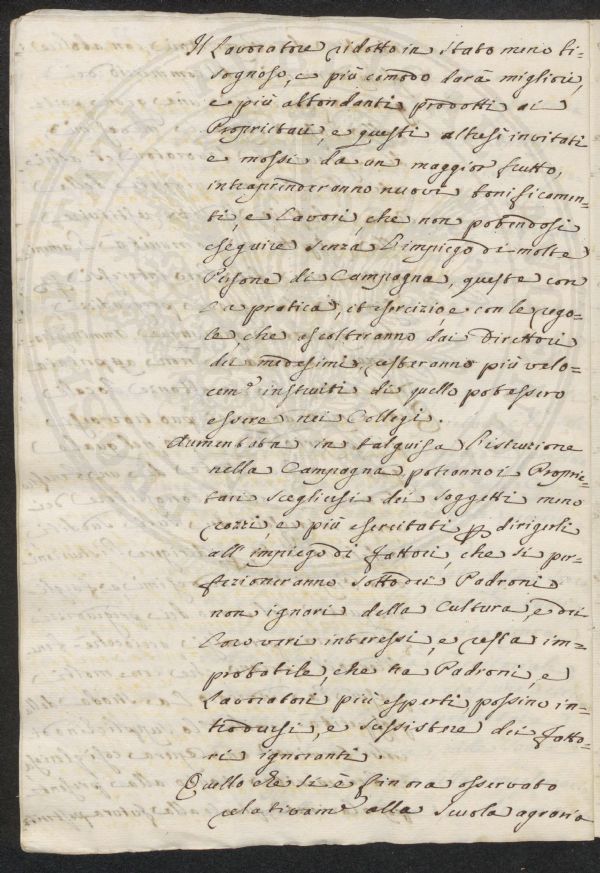 Il Lavoratore ridotto in stato meno bi=
sognoso, e più comodo darà migliori,
e più abbondanti prodotti ai
Proprietari, e questi altresì invitati
e mossi da un maggior frutto,
intraprenderanno nuovi bonificamen=
ti, e Lavori, che non potendosi
eseguire senza l'impiego di molte
Persone di Campagna, queste con
la pratica, ed esercizio, e con le rego=
le, che ascolteranno dai Direttori
dei medesimi, resteranno più velo=
cem.e instruiti di quello potessero
essere nei Collegi.
Aumentata in talguisa l'istruzione
nella Campagna potranno i Proprie=
tari scegliersi dei soggetti meno
rozzi, e più esercitati p dirigerli
all'impiego di Fattori, che si per=
fezioneranno sotto dei Padroni
non ignari della Cultura, e dei
Loro veri interessi, e resta im=
probabile, che tra Padroni, e
Lavoratori più esperti possino in=
trodursi, e sussistere dei Fatto=
ri ignoranti.
Quello che si è fin ora osservato
relativam.e alla scuola agraria